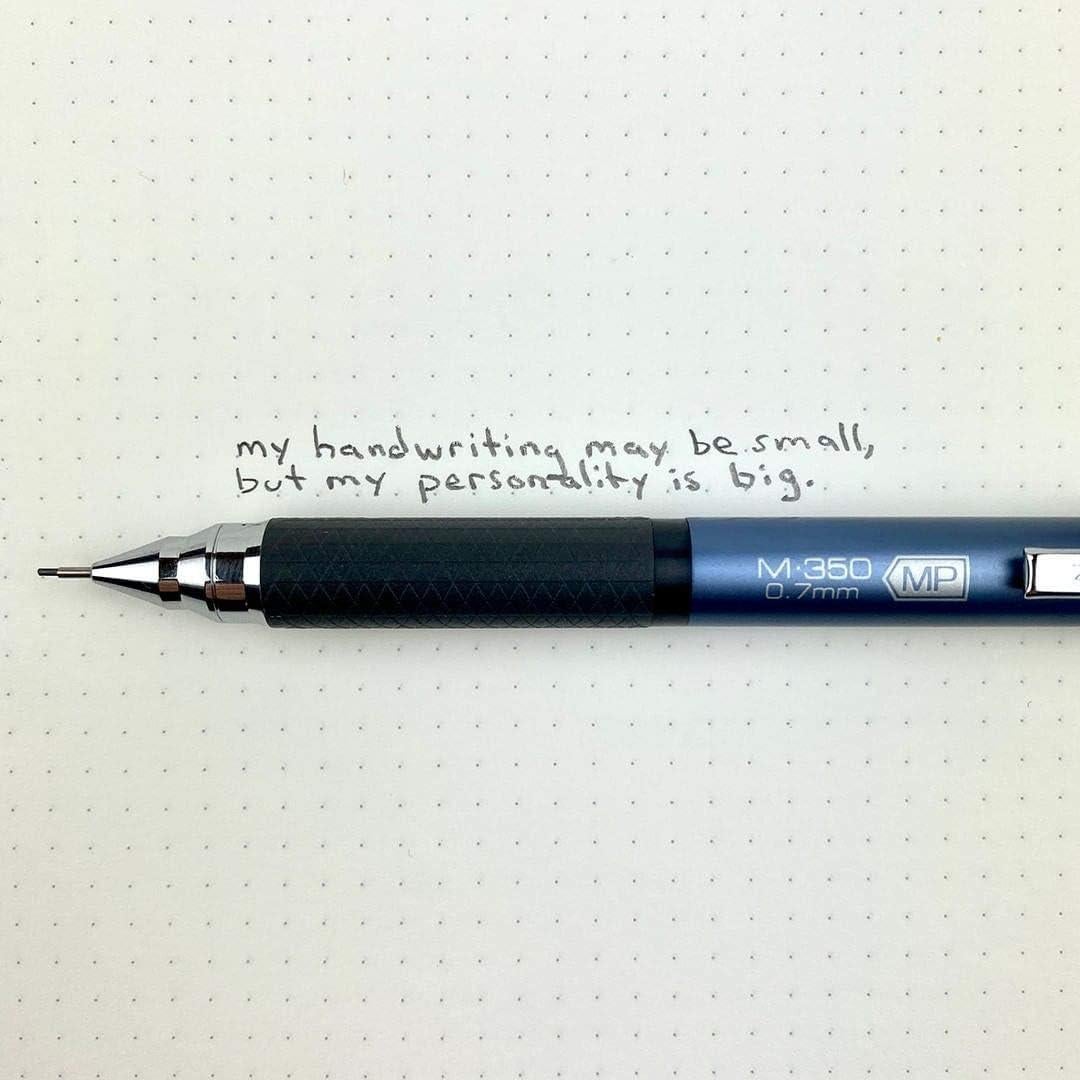 my handwriting may be small,
but my personality is big.
M·350
0.7mm
MP